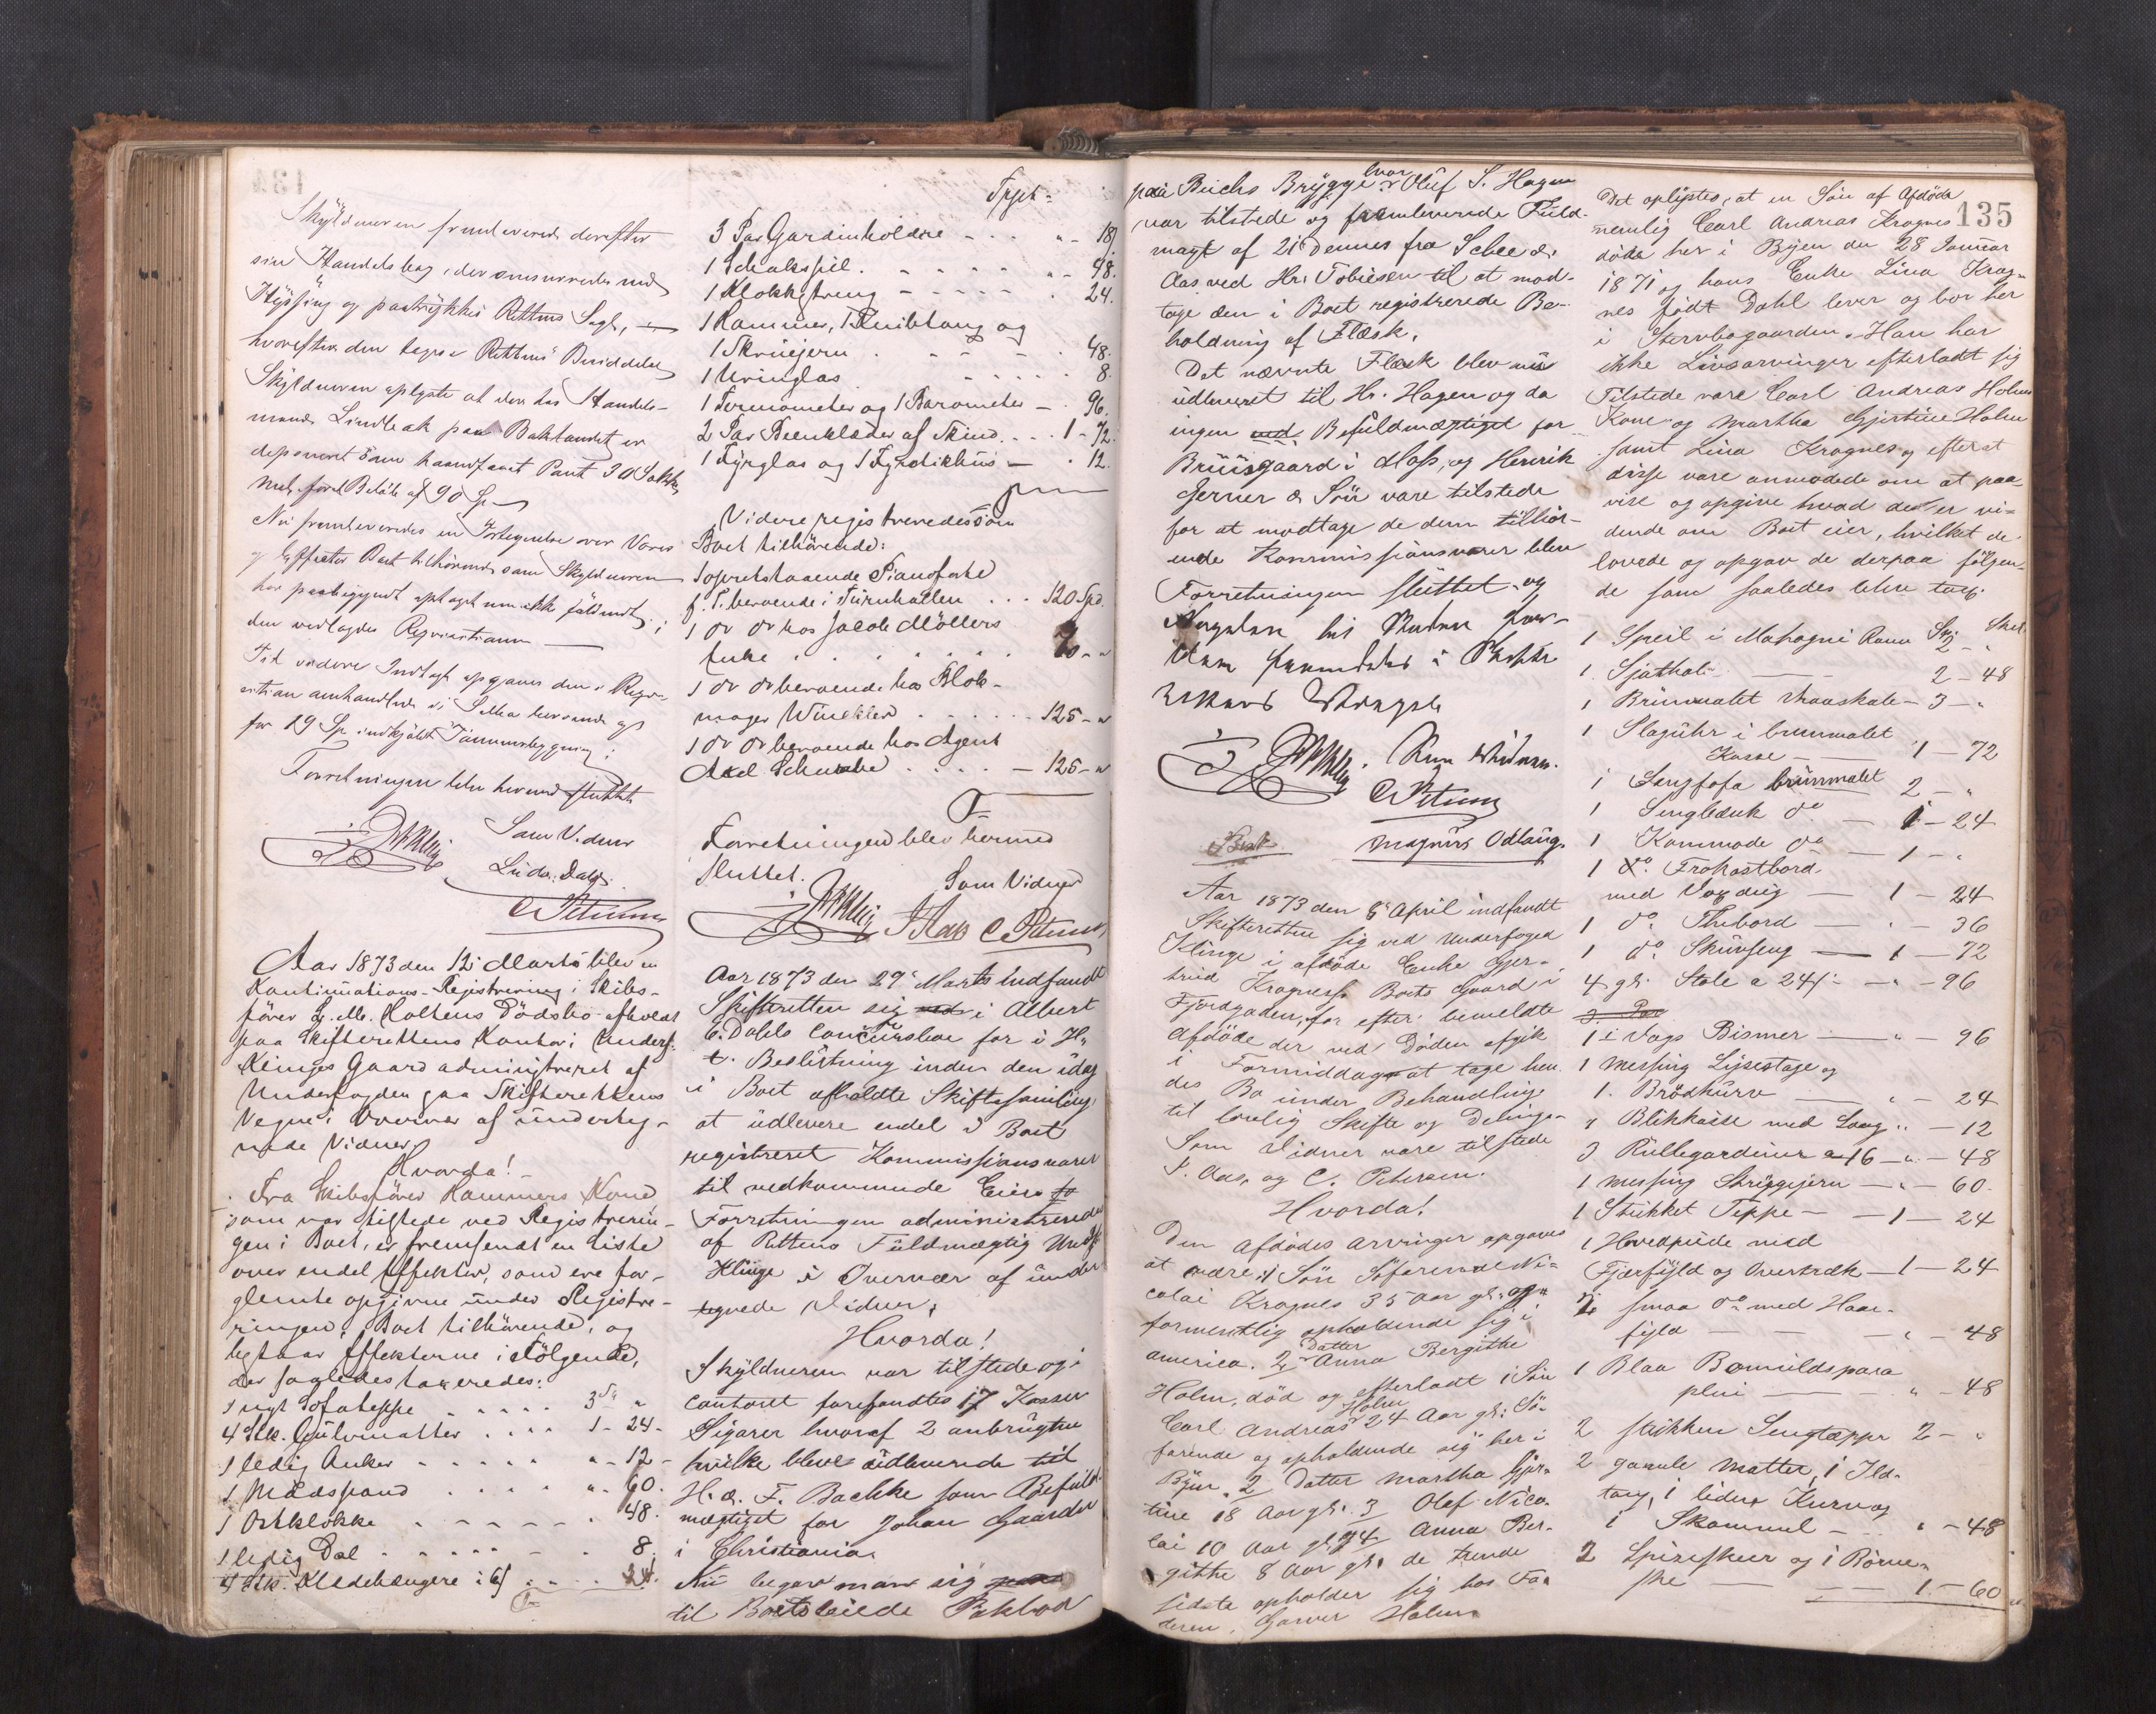 Skyldneren fremleverede derefter
sin Handelsbog, der omsnorede med
Hyssing og paatrykkes Rettens Segl,
hvorefter den toges i Rettens Besiddelse
Skyldneren oplyste at der hos Handels-
mand Lindbak paa Baklandet er
deponeret som haandfaaet Pant 30 Sække
Meel for et Beløb af 90 Sp
Nu fremleveredes en Fortegnelse over Varer
og Effecter Boet tilhørende som Skyldneren
har paabegyndt optaget men ikke fuldendt;
den vedlagdes Registrationen
Forretningen blev hermed sluttet
Som Vidner
Ludv. Dahl
C Petersen
Aar 1873 den 12' Marts blev en
Kontinuations-Registrering i Skibs-
fører L. M. Holtens Dødsbo afholdt
paa Skifterettens Kontor i Underf.
Klinges Gaard administreret af
Underfogden paa Skifterettens
Vegne i Overvær af underteg-
nede Vidner
Hvorda!
Fra Skibsfører Hammers Kone
som var tilstede ved Registrerin-
gen i Boet, er fremsendt en Liste
over endel Effekter, som ere for-
glemte opgivne under Registre-
ringen, Boet tilhørende, og
bestaar Effekterne i Følgende,
der saaledes taxeredes:
1 nyt Sofateppe . . . . 3 Sp "
4 Stk. Gulvmatter . . . . 1 - 24 -
1 ledig Anker - - - - " - 12 -
1 Maalspand . . . . " - 60.
1 Ostklokke - - - - - 48.
1 ledig Dal - - - - - 8.
4 Stk. Klædehængere i 6/ . . . 24.
Trspt:
3 Par Gardinholdere - - - " - 18
1 Schakspil. - - - - - " - 48.
1 Klokkestreng - - - - - 24.
1 Hammer, 1 Knibtang og
1 Skruejern . - - - - 48.
1 Uringlas - - - - - 8.
1 Termometer og 1 Barometer - . 96.
2 Par Beenklæder af Skind. . . . 1 - 72.
1 Fyrglas og 1 Fyrstikhus - . 12.
Videre registreredes som
Boet tilhørende:
1 opretstaaende Pianoforte
f. T. beroende i Turnhallen . . . 120 Spd
1 do do hos Jacob Møllers
Enke . . . . . . . 90 - "
1 do do beroende hos Blok-
mager Winckler . . . . . . 125 - "
1 do do beroende hos Agent
Axel Schwabe . . . . - 125 - "
Forretningen blev hermed
sluttet.
Som Vidner
P. Aas C Petersen
Aar 1873 den 29' Marts indfandt
Skifteretten sig i Albert
E. Dahls Concursboe for i H.
t. Beslutning inden den idag
i Boet afholdte Skiftesamling
at udlevere endel i Boet
registreret Kommissionsvarer
til vedkommende Eiere
Forretningen administreredes
af Rettens Fuldmægtig Undf.
Klinge i Overvær af under
tegnede Vidner.
Hvorda!
Skyldneren var tilstede og i
Contoret forefandtes 17 Kasser
Sigarer hvoraf 2 anbrugte
hvilke bleve udleverede til
H. d. F. Bachke som Befuld-
mægtiget for Johan Gaarder
i Christiania.
Nu begav man sig
til Boets leiede Paklod
paa Buchs Brygge hvor Oluf S. Hagen
var tilstede og fremleverede Fuld-
magt af 21' Dennes fra Schee &
Aas ved Hr. Tobiesen til at mod-
tage den i Boet registrerede Be-
holdning af Flæsk.
Det nævnte Flæsk blev nu
udleveret til Hr. Hagen og da
ingen Befuldmægtiget for
Bruusgaard i Moss, og Henrik
Gerner & Søn vare tilstede
for at modtage de dem tilhør-
ende Kommissionsvarer blev
Forretningen sluttet og
C Petersen
Magnus Odlaug.
Aar 1873 den 8' April indfandt
Skifteretten sig ved Underfoged
Klinge i afdøde Enke Gjer-
trud Kragness Boets Gaard i
Fjordgaden, for efter bemeldte
Afdøde der ved Døden afgik
i Formiddag at tage hen-
des Bo under Behandling
til lovlig Skifte og Delinge.
Som Vidner vare tilstede
P. Aas, og C. Petersen.
Hvorda!
Den Afdødes Arvinger opgaves
at være: 1 Søn Søfarende Ni-
colai Kragnes 35 Aar gl.
formentlig opholdende sig i
America. 2 Datter Anna Bergithe
Holm, død og efterladt 1 Søn
Carl Andreas Holm 24 Aar gl: Sø-
farende og opholdende sig her i
Byen. 2 Datter Martha Gjer-
tine 18 Aar gl. 3 Olaf Nico-
lai 10 Aar gl. og 4 Anna Ber-
githe 8 Aar gl. de trende
sidste opholder sig hos Fa-
deren, Garver Holm
135
Det oplystes, at en Søn af Afdøde
nemlig Carl Andreas Kragnes
døde her i Byen den 28 Januar
1871 og hans Enke Lina Krag-
nes født Dahl lever og bor her
i Stervbogaarden. Han har
ikke Livsarvinger efterladt sig
Tilstede vare Carl Andreas Holms
Kone og Martha Gjertine Holm
samt Lina Kragnes og efterat
disse vare anmodede om at paa-
vise og opgive hvad de er vi-
dende om Boet eier, hvilket de
lovede og opgav de derpaa følgen-
de som saaledes blev tax.
1 Speil i Mahogni Rame Sp. 2 - "
1 Sjathol - 2 - 48
1 Brunmalet Chaaskab - 3 - "
1 Slaguhr i brunmalet
Kasse - 1 - 72
1 Sengsofa brunmalet 2 - "
1 Sengbænk do - 1 - 24
1 Kommode do - 1 - "
1 do. Frokostbord
med Voxdug - 1 - 24
1 do. Thebord - " - 36
1 do. Skuvseng - 1 - 72
4 gl. Stole a 24 /: - " - 96
1 1 Vogs Bismer - " - 96
1 Messing Lysestage og
1. Brødkurv - " - 24
1 Blikkasse med Laag " - 12
3 Rullegardiner a 16 - " - 48
1 Messing Strygejern - " - 60
1 Stukket Teppe - - 1 - 24
1 Hovedpude med
Fjærfyld og Overtræk - 1 - 24
2 smaa do med Haar-
fyld - - " - 48
1 Blaa Bomuldspara
plui - " - 48
2 stukken Sengtæpper 2 - "
2 gamle Matter, 1 Ild-
tang, 1 liden Kurv og
1 Skammel - " - 48
2 Spiseskeer og 1 Børne-
ske - 1 - 60